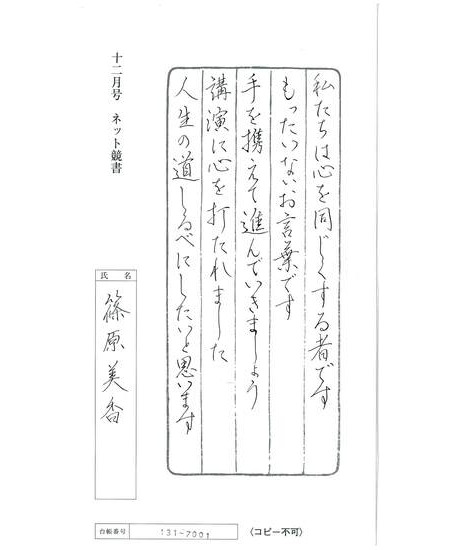 私たちは心を同じくする者です
もったいないお言葉です
手を携えて進んでいきましょう
講演に心を打たれました
人生の道しるべにしたいと思います
十二月号 ネット競書
氏名
篠原美香
台帳番号 131-7001
(コピー不可)